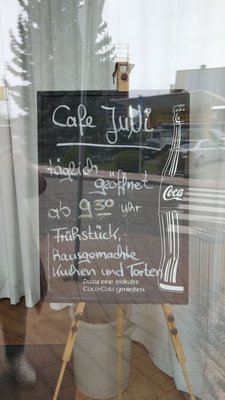 Cafe Juli
täglich
geöffnet
ab 9³⁰ Uhr
Frühstück,
Hausgemachte
Kuchen und Torten
Dazu eine eiskalte
Coca-Cola genießen.
Coca